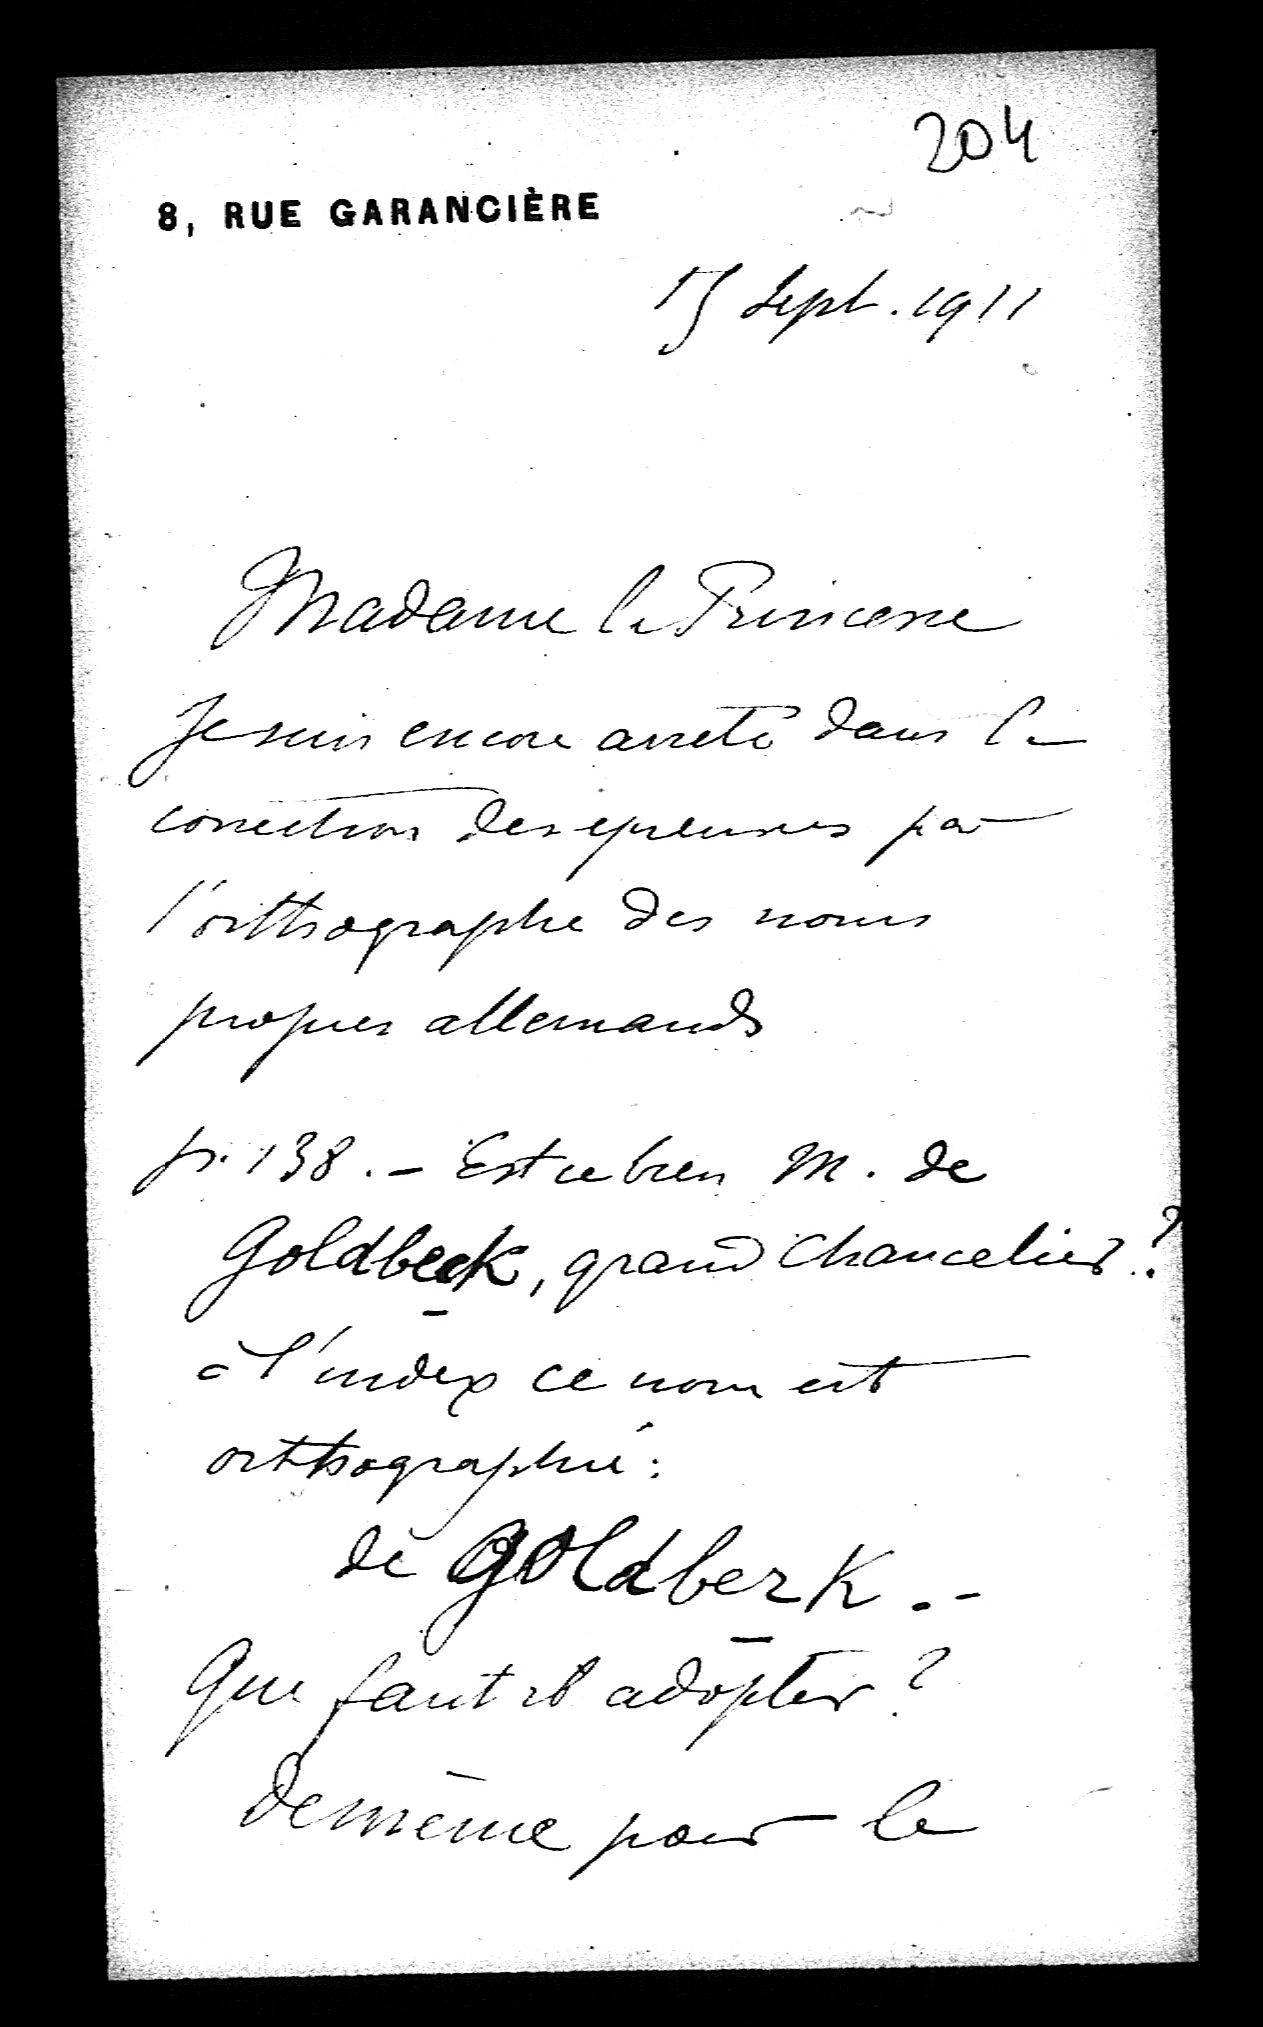 204
8, RUE GARANCIÈRE
15 Sept. 1911
Madame la Princesse
Je suis encore arreté dans la
correction des epreuves par
l'orthographe des noms
propres allemands
p. 138. - Est ce bien M. de
Goldbeck, grand Chancelier?
à l'index ce nom est
orthographié:
de Goldberk. -
Que faut il adopter?
de même pour le